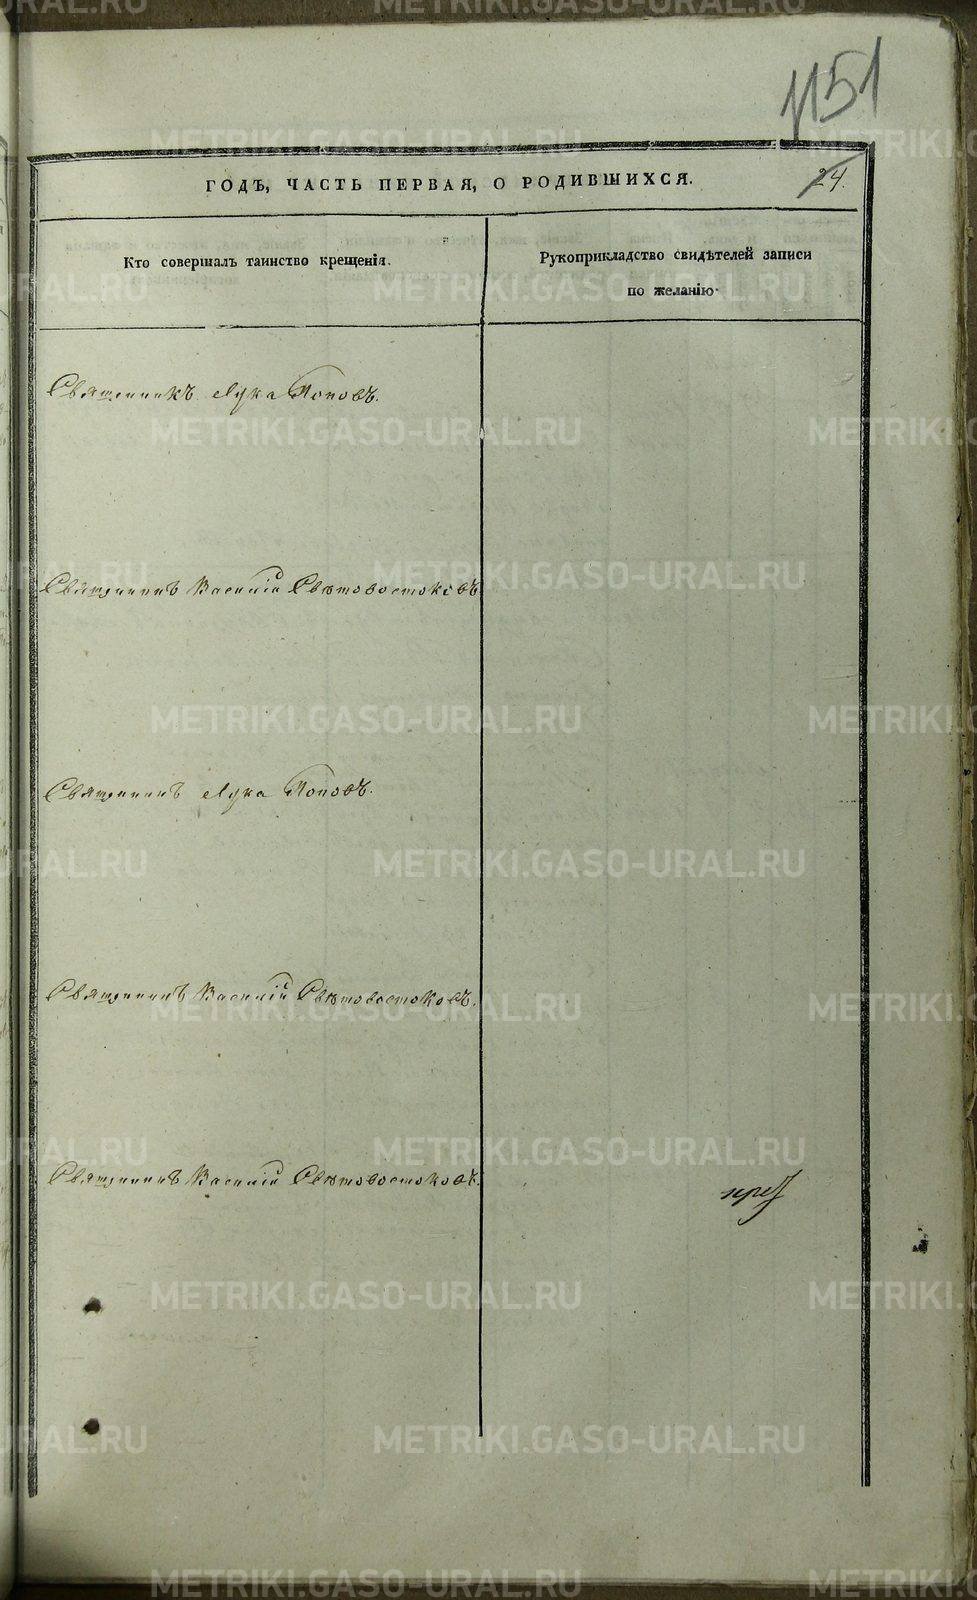 1151
ГОДЪ, ЧАСТЬ ПЕРВАЯ, О РОДИВШИХСЯ.
24.
Кто совершалъ таинство крещенія.
Рукоприкладство свидѣтелей записи
по желанію.
Священникъ Лука Поповъ.
Священникъ Василій Свѣтовостоковъ
Священникъ Лука Поповъ.
Священникъ Василій Свѣтовостоковъ.
Священникъ Василій Свѣтовостоковъ.
METRIKI.GASO-URAL.RU